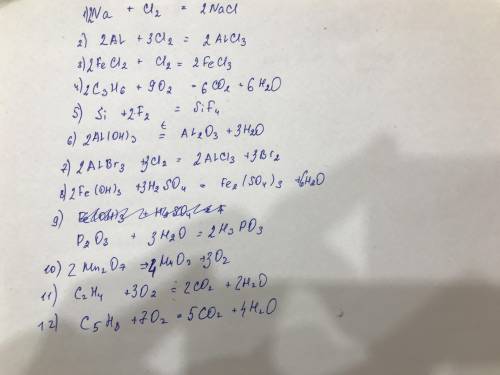 1) 2Na + Cl2 = 2NaCl
2) 2AL + 3Cl2 = 2AlCl3
3) 2FeCl2 + Cl2 = 2FeCl3
4) 2C3H6 + 9O2 = 6CO2 + 6H2O
5) Si + 2F2 = SiF4
6) 2AL(OH)3 t = AL2O3 + 3H2O
7) 2ALBr3 + 3Cl2 = 2ALCl3 + 3Br2
8) 2Fe(OH)3 + 3H2SO4 = Fe2(SO4)3 + 6H2O
9)
P2O3 + 3H2O = 2H3PO3
10) 2Mn2O7 → 4MnO2 + 3O2
11) C2H4 + 3O2 = 2CO2 + 2H2O
12) C5H8 + 7O2 = 5CO2 + 4H2O